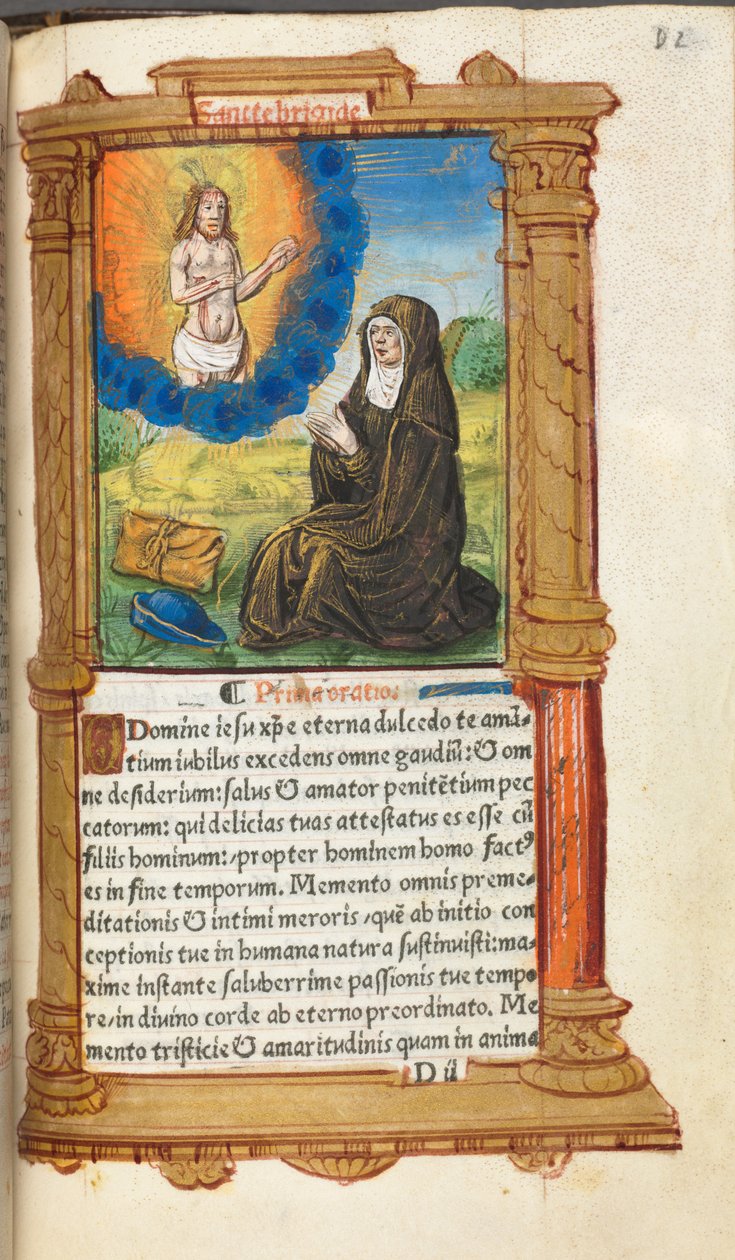 D 2
Sancte brigide
¶ Prima oratio.
O Domine iesu xp̄e eterna dulcedo te amā-
tium iubilus excedens omne gaudiū: & om
ne desiderium: salus & amator penitētium pec
catorum: qui delicias tuas attestatus es esse cū
filiis hominum: propter hominem homo factꝰ
es in fine temporum. Memento omnis preme-
ditationis & intimi meroris, quē ab initio con
ceptionis tue in humana natura sustinuisti: ma-
xime instante saluberrime passionis tue tempo
re, in divino corde ab eterno preordinato. Me
mento tristicie & amaritudinis quam in anima
D ii